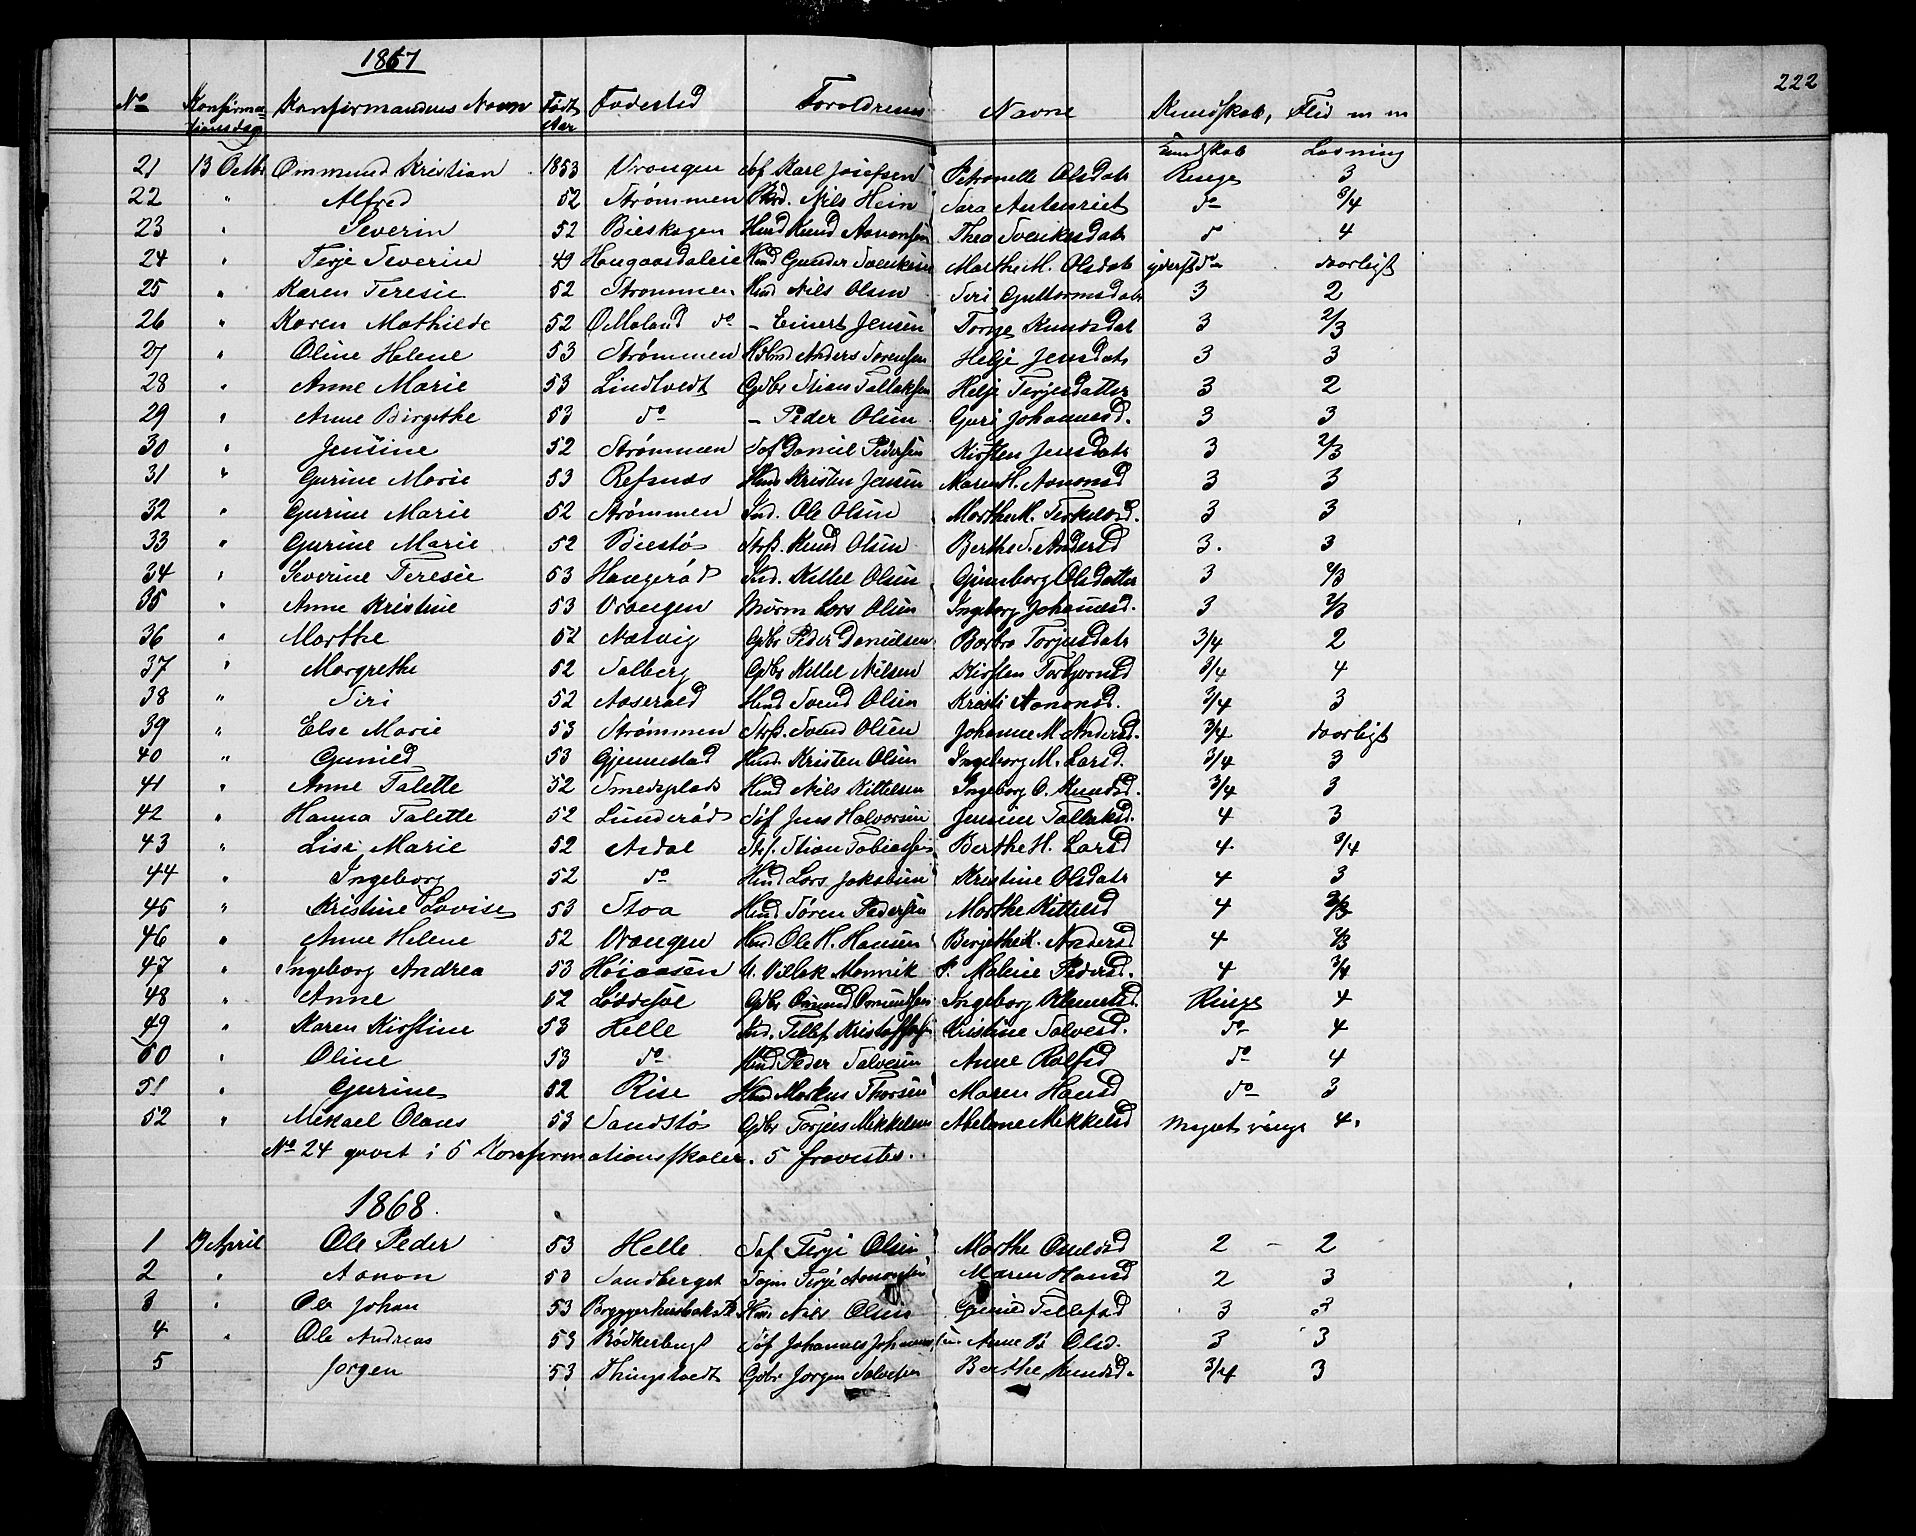 1867
222
No Konfirma- Konfirmandens Navn Født Fødested Forældrenes Navne Kundskab, Flid m m
tionsdag Aar
Kundskab Læsning
21 13 Octbr Ommund Kristian 1853 Vrangen Søf Karl Josefsen Petronelle Olsdatr Ringe 3
22 " Alfred 52 Strømmen Nils Hein Sara 3/4
23 " Severin 52 Bieskagen Husmd Knud Aanonsen Thea Sveinkesdatr do 4
24 " Terje Severin 49 Haugaasdaleie Husmd Gunder Sveinksen Marthe M. Olsdatr yderst do daarligt
25 " Karen Teresie 52 Strømmen Husmd Nils Olsen Siri Guttormsdatr 3 2
26 " Karen Mathilde 52 Ø Moland do - Einert Jensen Torge Knudsdat 3 2/3
27 " Oline Helene 53 Strømmen Anders Sørensen Helje Jensdatr 3 3
28 " Anne Marie 53 Lindtvedt Gdbr Stian Tallaksen Helje Terjesdatter 3 2
29 " Anne Birgithe 53 do - Peder Olsen Guri Johannesd. 3 3
30 " Jensine 52 Strømmen Søf Daniel Pedersen Kirsten Jensdatr 3 2/3
31 " Gurine Marie 53 Refsnæs Husmd Kristen Jensen Maren H. Aanonsd 3 3
32 " Gurine Marie 52 Strømmen Ind. Ole Olsen Marthe M. Terkelsd. 3 3
33 " Gurine Marie 52 Biestø Strß. Knud Olsen Berthe S. Andersd 3. 3
34 " Severine Teresie 53 Haugerød Ind. Kittel Olsen Gjineborg Olsdatter 3 2/3
35 " Anne Kristine 53 Vrangen Lars Olsen Ingeborg Johannesd. 3 2/3
36 " Marthe 52 Natvig Gdbr Peder Danielsen Barbro Torjusdatr 3/4 2
37 " Margrethe 52 Salberg Gdbr Kittel Nilsen Kirsten Torbjørnsd 3/4 4
38 " Siri 52 Aaserød Husmd Svend Olsen Kristi Aanonsd. 3/4 3
39 " Else Marie 53 Strømmen Strß. Svend Olsen Johanne M. Andersd. 3/4 daarligt
40 " Gunild 53 Gjennestad Husmd Kristen Olsen Ingeborg M. Larsd. 3/4 3
41 " Anne Talette 52 Smedsplads Husmd Nils Kittelsen Ingeborg O. Knudsd. 3/4 3
42 " Hanna Talette 52 Lunderød Søf Jens Halvorsen Jensine Tallaksd. 4 3
43 " Lise Marie 52 Asdal Stian Tobiassen Berthe H. Larsd 4. 3/4
44 " Ingeborg 52 do Husmd Lars Jakobsen Kristine Olsdatr 4 3
45 " Kristine Lovise 53 Stoa Husmd Søren Pedersen Marthe Kittelsd 4 2/3
46 " Anne Helene 52 Vrangen Husmd Ole H. Hansen Berjethe K. Andersd 4 2/3
47 " Ingeborg Andrea 53 Høiaasen U. Villak Monnik P. Malene Pedersd. 4 3/4
48 " Anne 52 Løddesøl Gdbr Omund Omundsen Ingeborg Ringe 4
49 " Karen Kirstine 53 Helle Ind. Tellef Kristoffersen Kristine Salvesd. do 4
50 " Oline 53 do Husmd Peder Salvesen Anne Rolfsd do 4
51 " Gurine 52 Rise Husmd Markus Thorsen Maren Hansd do 3
52 " Mikael Olaus 53 Sandstø Gdbr Torjus Mikkelsen Abelone Mikkelsd Meget ringe 4.
No 24 gaaet i 5 Konfirmationsskoler. 5 fravistes.
1868.
1 13 April Ole Peder 53 Helle Søf Terje Olsen Marthe Osuldsd 2 - 2
2 " Aanon 53 Sandberget Terje Aanonsen Maren Hansd 2 3
3 " Ole Johan 53 Bryggerhusbakken Husmd Nils Olsen Gunild Tellefsd 3 3
4 " Ole Andreas 53 Søf Johannes Johannessen Anne B Olsd. 3 3
5 Jørgen 53 Thingstvedt Gdbr Jørgen Salvesen Berthe Knudsd. 3/4 3